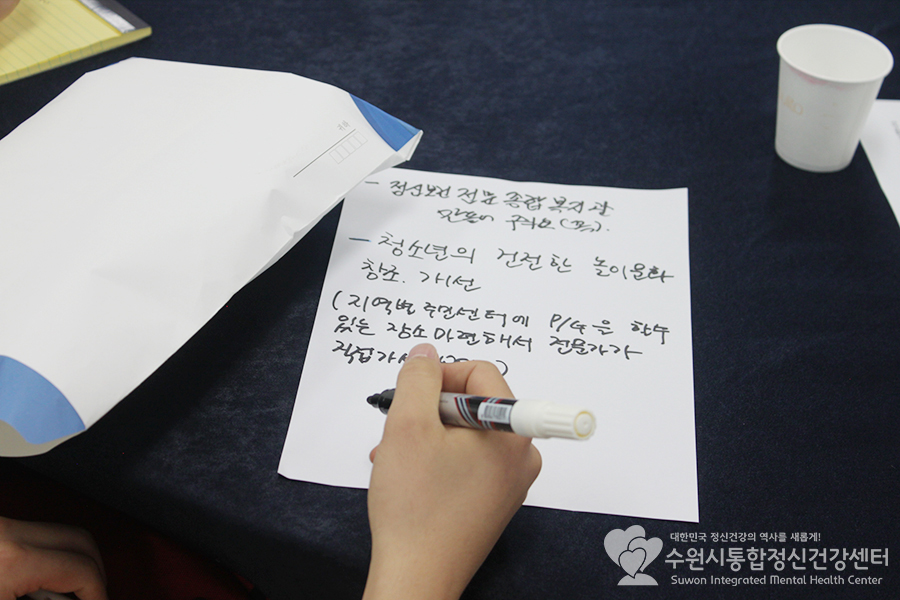 귀하
- 정신보건 전문 종합 복지관
만들어 주세요
- 청소년의 건전한 놀이문화
창조. 개선
(지역별 주민센터에 P/G을 할수
있는 장소 마련해서 전문가가
직접가서
대한민국 정신건강의 역사를 새롭게!
수원시통합정신건강센터
Suwon Integrated Mental Health Center